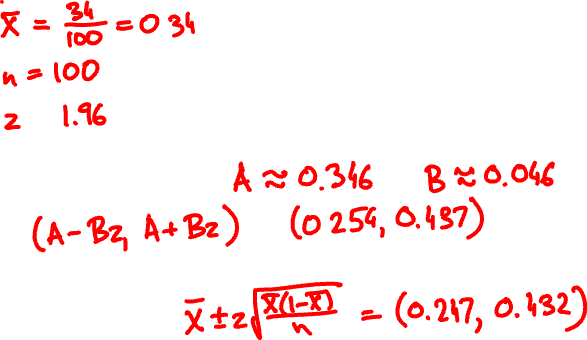 x̄ = 34/100 = 0 34
n = 100
z 1.96
A ≈ 0.346 B ≈ 0.046
(A-Bz, A+Bz) (0 254, 0.437)
x̄ ± z√(x̄(1-x̄)/n) = (0.247, 0.432)